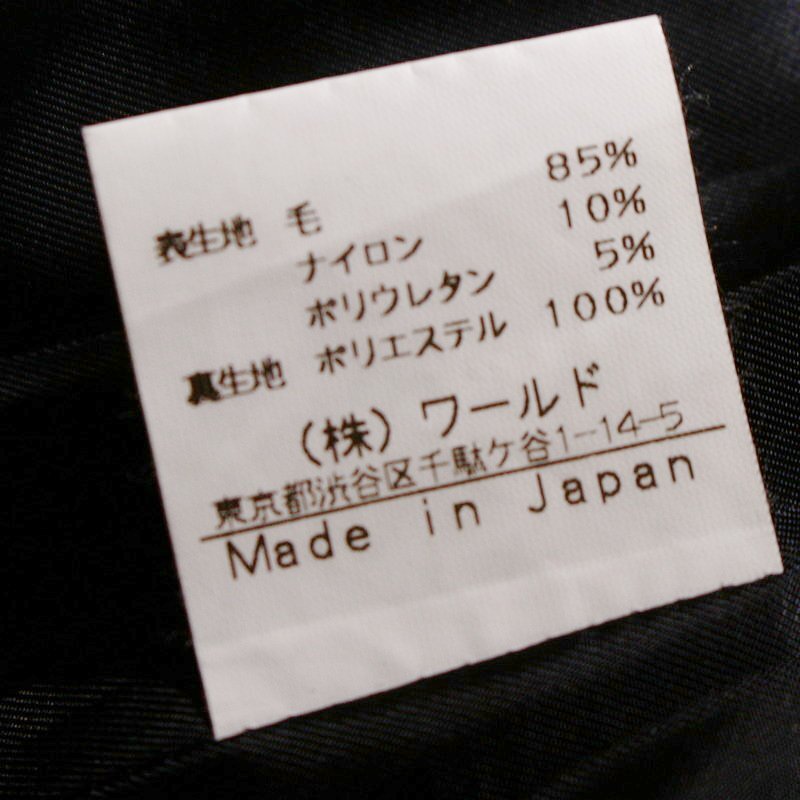 表生地 毛 85%
ナイロン 10%
ポリウレタン 5%
裏生地 ポリエステル 100%
(株) ワールド
東京都渋谷区千駄ケ谷1-14-5
Made in Japan